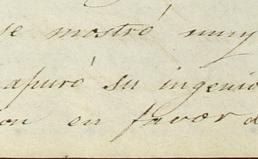 se mostró muy
apuró su ingenio
on en favor d